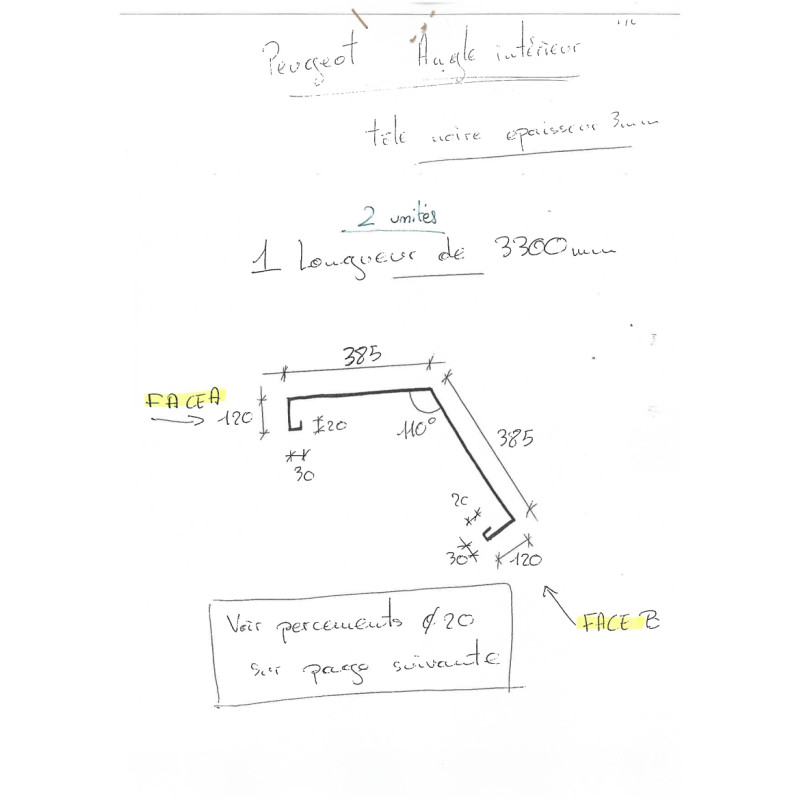 Peugeot Angle intérieur
tôle noire epaisseur 3mm
2 unités
1 Longueur de 3300mm
385
FACE A
120
20
110°
385
30
20
30
120
FACE B
Voir percements ϕ20
sur page suivante